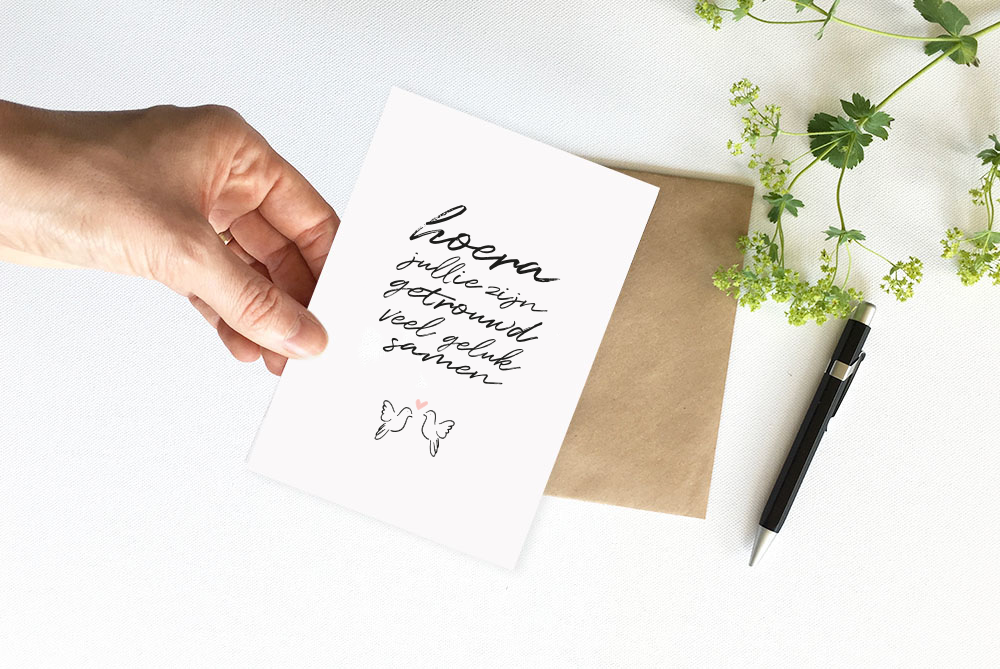 hoera
jullie zijn
getrouwd
veel geluk
samen